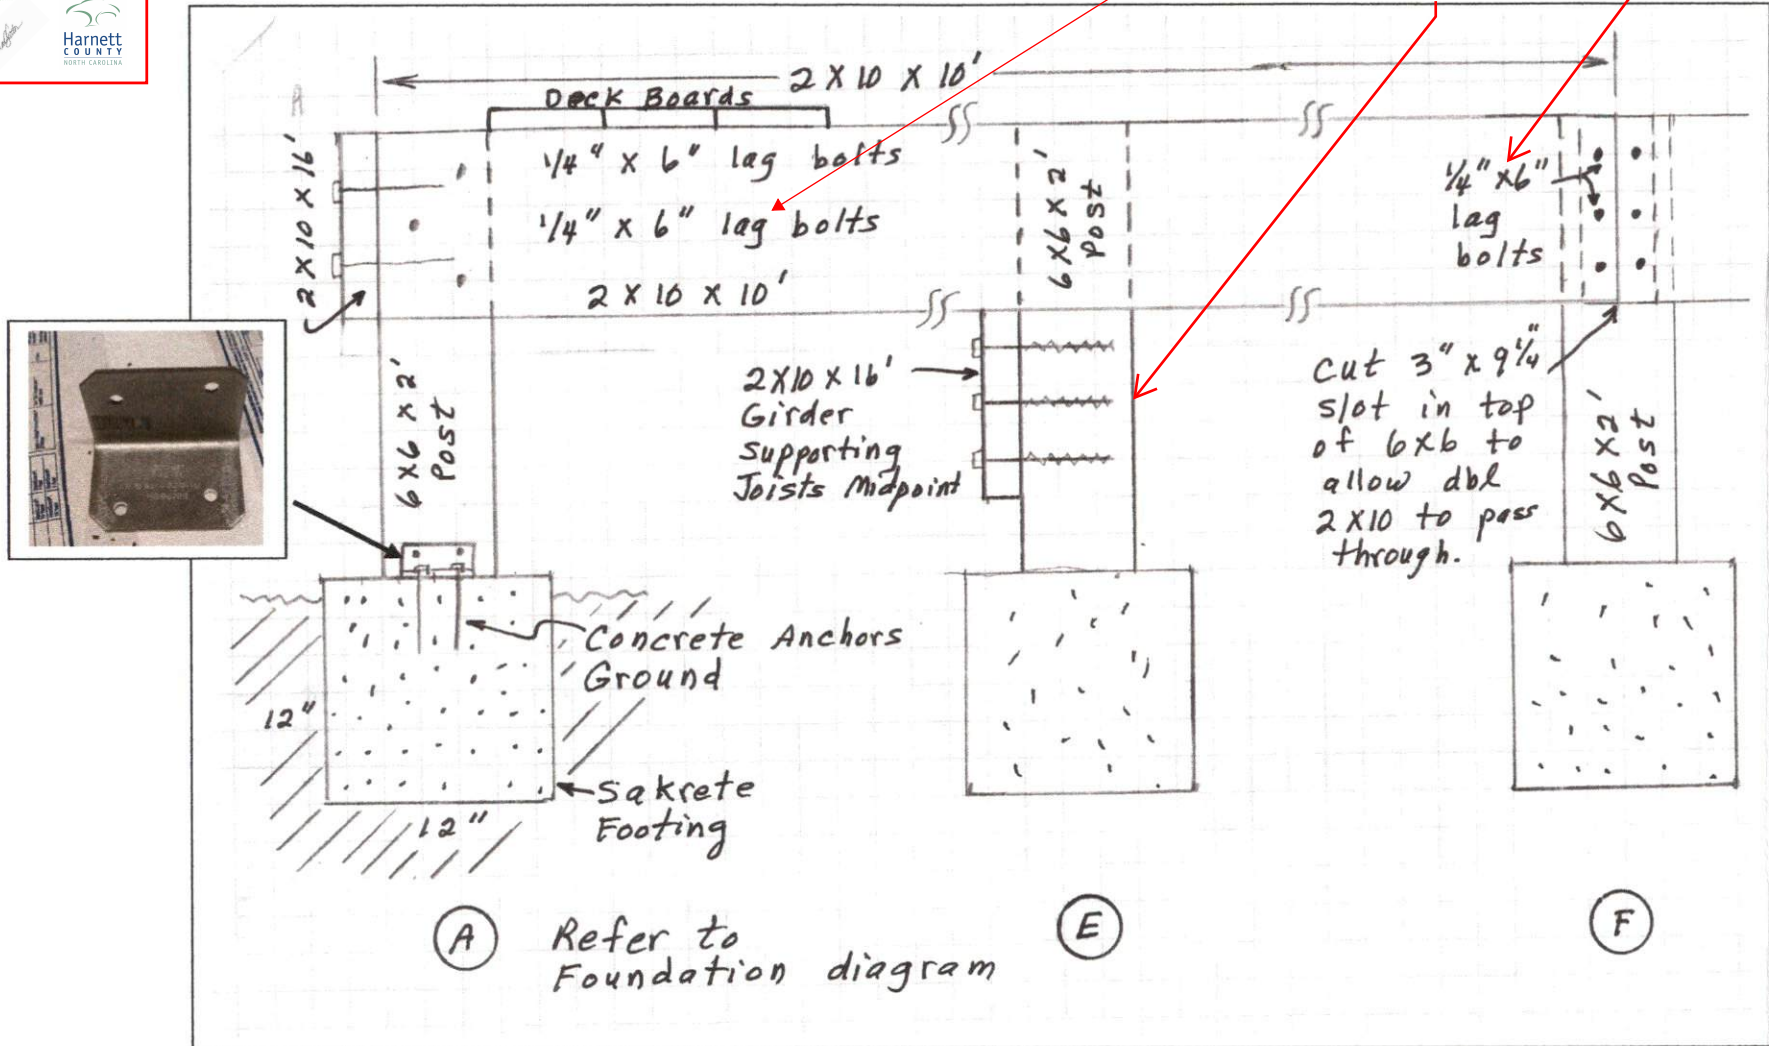 Harnett
COUNTY
NORTH CAROLINA
2 X 10 X 10'
Deck Boards
2 X 10 X 16'
1/4" X 6" lag bolts
1/4" X 6" lag bolts
2 X 10 X 10'
6 X 6 X 2'
Post
6 X 6 X 2'
Post
1/4" X 6"
lag
bolts
2 X 10 X 16'
Girder
Supporting
Joists Midpoint
Cut 3" X 9 1/4"
slot in top
of 6 X 6 to
allow dbl
2 X 10 to pass
through.
6 X 6 X 2'
Post
Concrete Anchors
Ground
12"
Sakrete
Footing
12"
A
Refer to
Foundation diagram
E
F